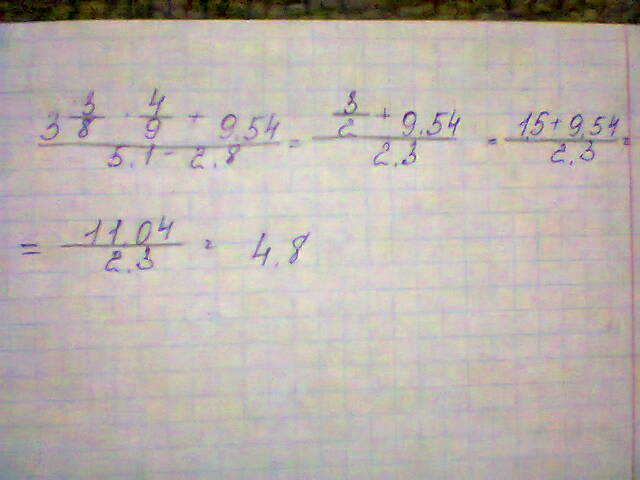 (3 3/8 · 4/9 + 9.54)/(5.1 - 2.8) = (3/2 + 9.54)/2.3 = (1.5 + 9.54)/2.3 =
= 11.04/2.3 = 4.8